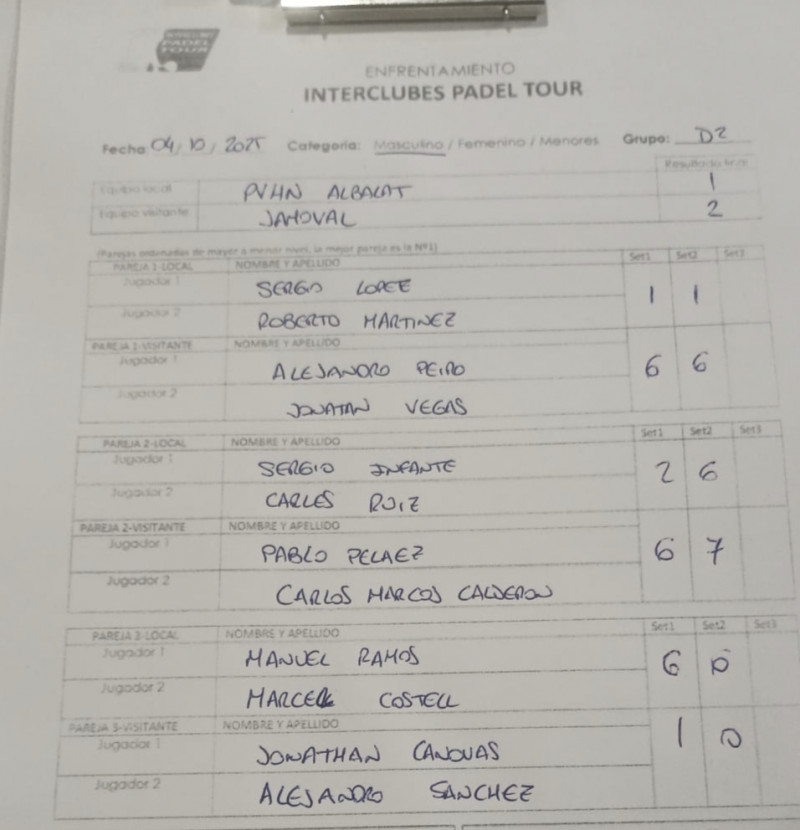 PADEL
TOUR
ENFRENTAMIENTO
INTERCLUBES PADEL TOUR
Fecha: 04/10/2025 Categoria: Masculino / Femenino / Menores Grupo: D2
Resultado final
Equipo local PVHN ALBALAT 1
Equipo visitante JAMOVAL 2
(Parejas ordenadas de mayor a menor nivel, la mejor pareja es la Nº1)
PAREJA 1-LOCAL NOMBRE Y APELLIDO Set1 Set2 Set3
Jugador 1 SERGIO LOPEZ 1 1
Jugador 2 ROBERTO MARTINEZ
PAREJA 1-VISITANTE NOMBRE Y APELLIDO
Jugador 1 ALEJANDRO PEIRO 6 6
Jugador 2 JONATAN VEGAS
PAREJA 2-LOCAL NOMBRE Y APELLIDO Set1 Set2 Set3
Jugador 1 SERGIO INFANTE 2 6
Jugador 2 CARLES RUIZ
PAREJA 2-VISITANTE NOMBRE Y APELLIDO
Jugador 1 PABLO PELAEZ 6 7
Jugador 2 CARLOS MARCOS CALDERON
PAREJA 3-LOCAL NOMBRE Y APELLIDO Set1 Set2 Set3
Jugador 1 MANUEL RAMOS 6 0
Jugador 2 MARCEL COSTELL
PAREJA 3-VISITANTE NOMBRE Y APELLIDO
Jugador 1 JONATHAN CANOVAS 1 0
Jugador 2 ALEJANDRO SANCHEZ